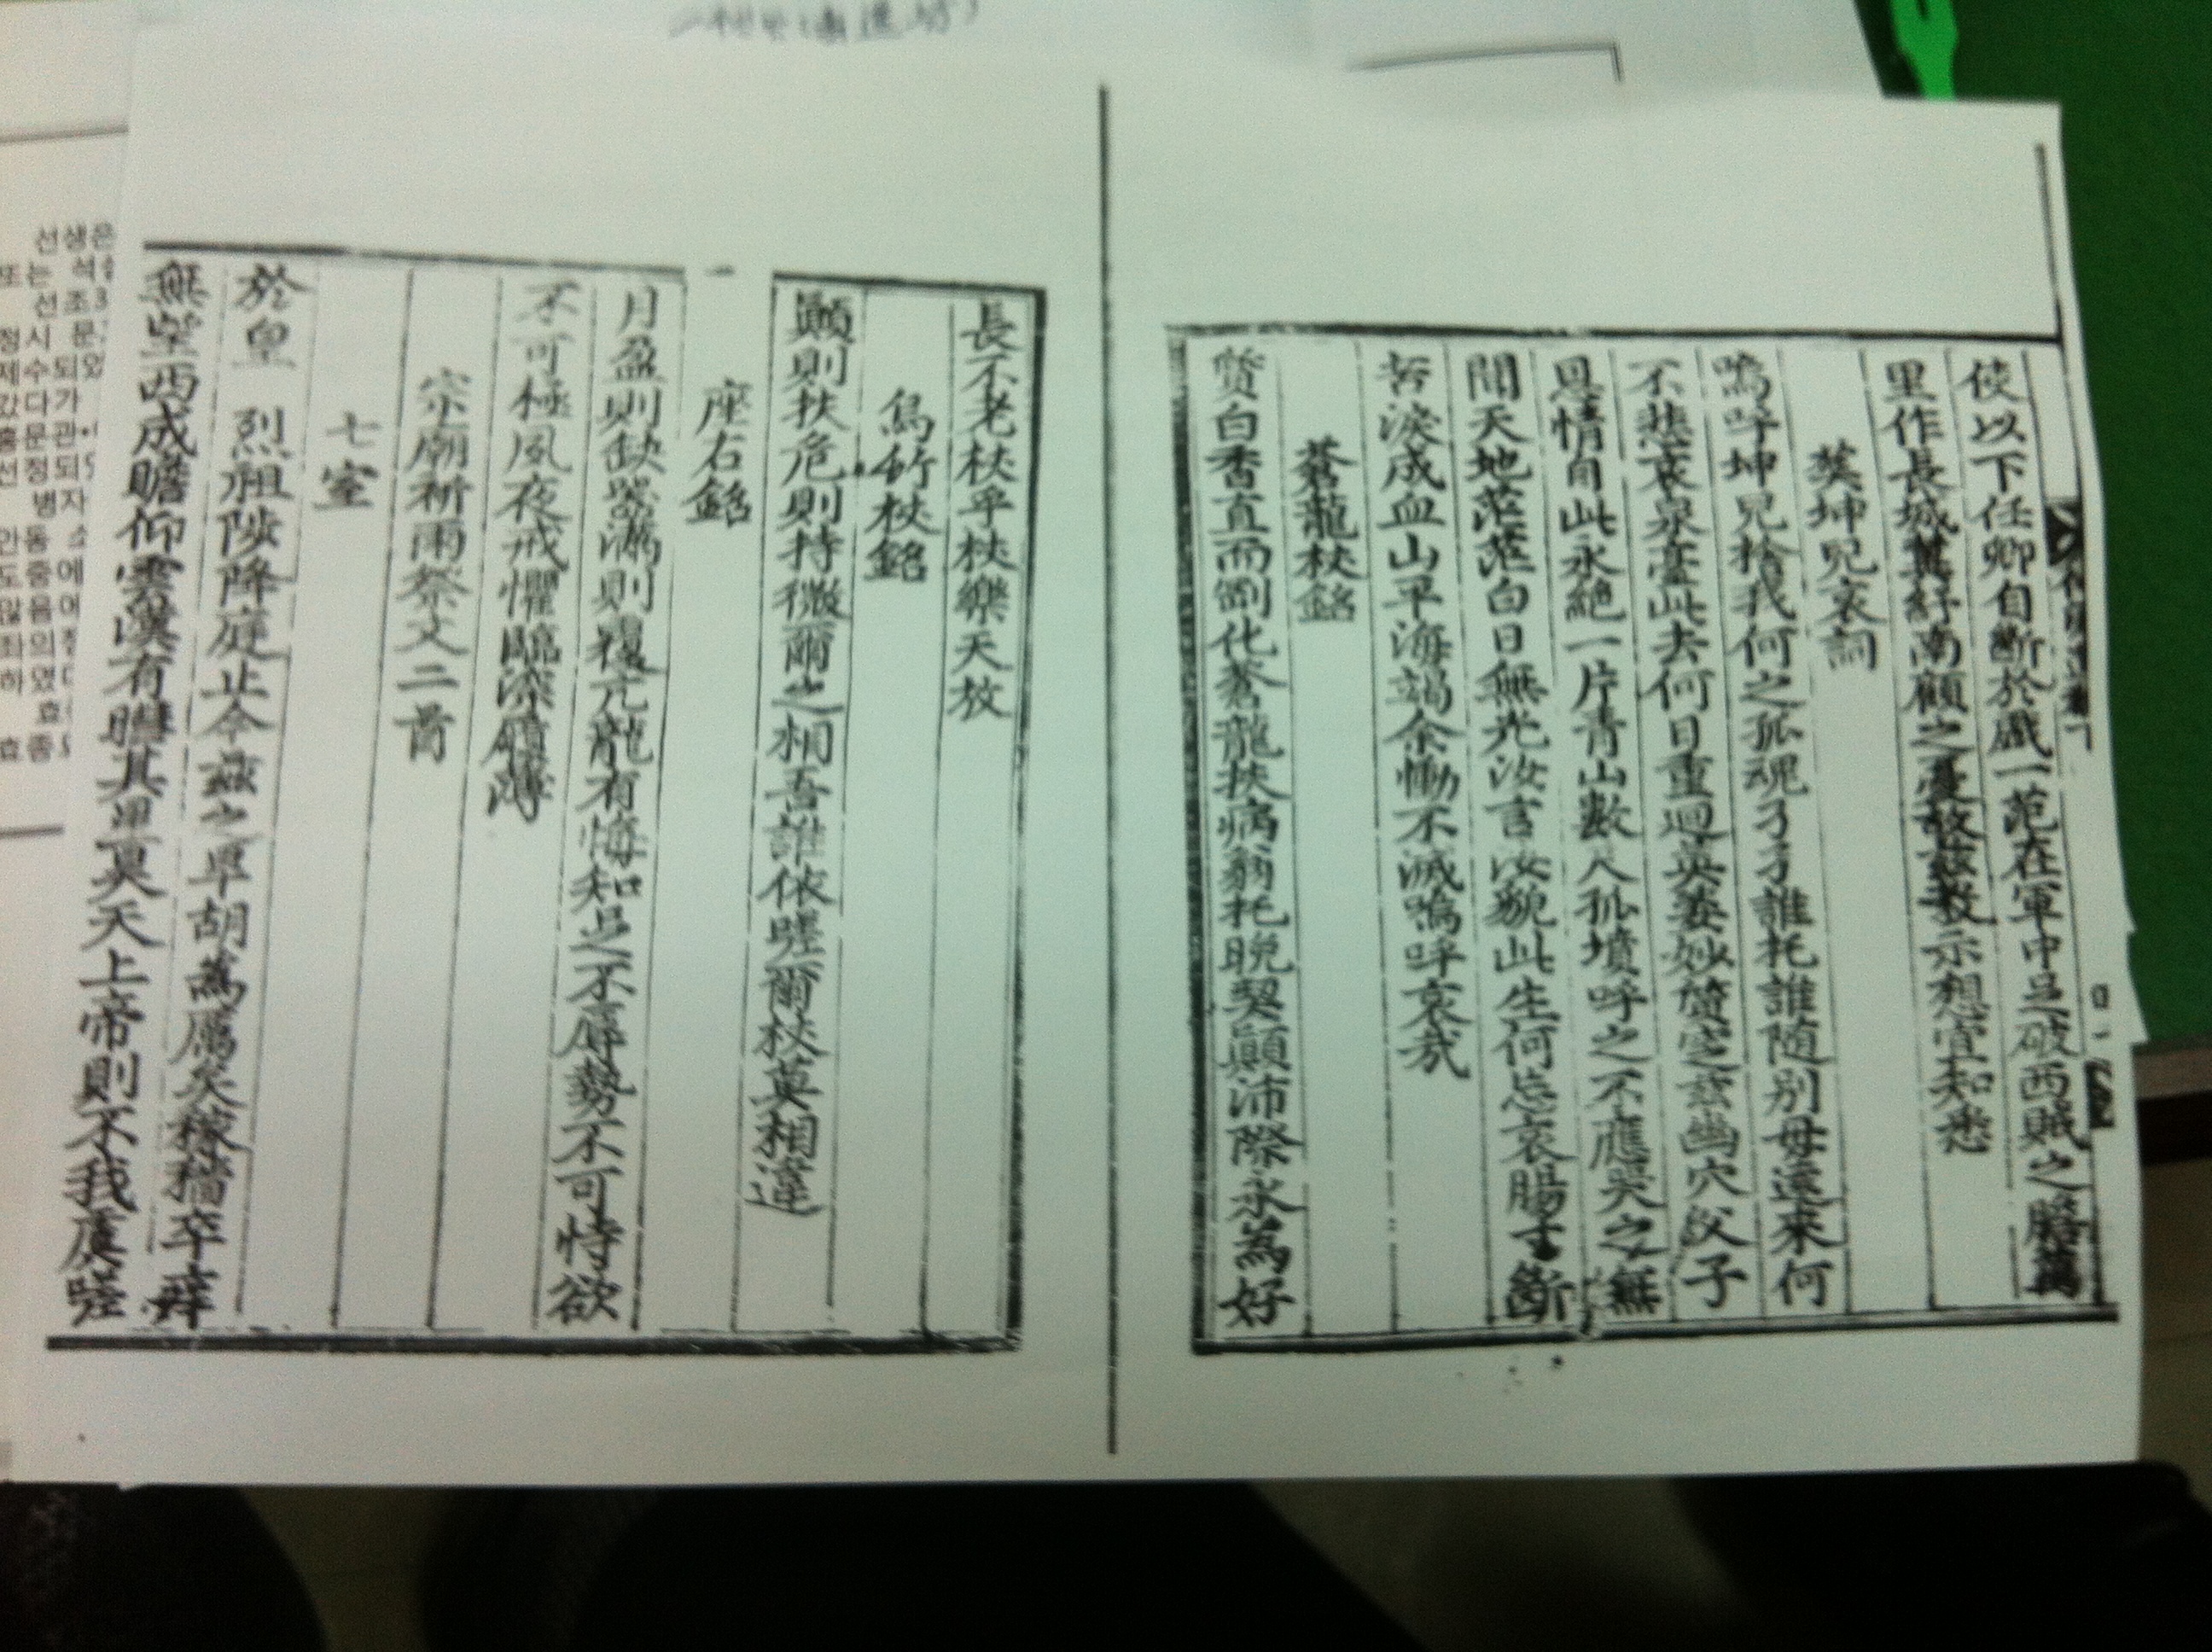 使以下任卿自断於戱一范在軍中足破西賊之膽萬
里作長城其紓南顧之憂故玆教示想宜知悉
葬坤兒哀詞
嗚呼坤兒捨我何之孤魂孑孑誰托誰随別母遠來何
不悲哀泉臺此去何日重廻英姿妙質窆玆幽穴父子
恩情自此永絶一片青山數尺孤墳呼之不應哭之無
聞天地茫茫白日無光汝言汝貌此生何忘哀腸寸斷
苦淚成血山平海竭余慟不滅嗚呼哀哉
蒼龍杖銘
質白香直而剛化蒼龍扶病翁托晩契顚沛際永為好
長不老杖乎杖樂天放
烏竹杖銘
顚則扶危則持微爾之相吾誰依嗟爾杖莫相違
座右銘
月盈則缺器滿則覆亢龍有悔知足不辱勢不可恃欲
不可極夙夜戒懼臨深履薄
宗廟祈雨祭文二首
七室
於皇 烈祖陟降庭止今玆之旱胡為厲矣稼穡卒痒
無望西成瞻仰雲漢有嘒其星昊天上帝則不我虞嗟
선생은
또는 석
선조3
시 문
수되었
다가
문관
정되
병자
동
중에
음
의
였
효
효종